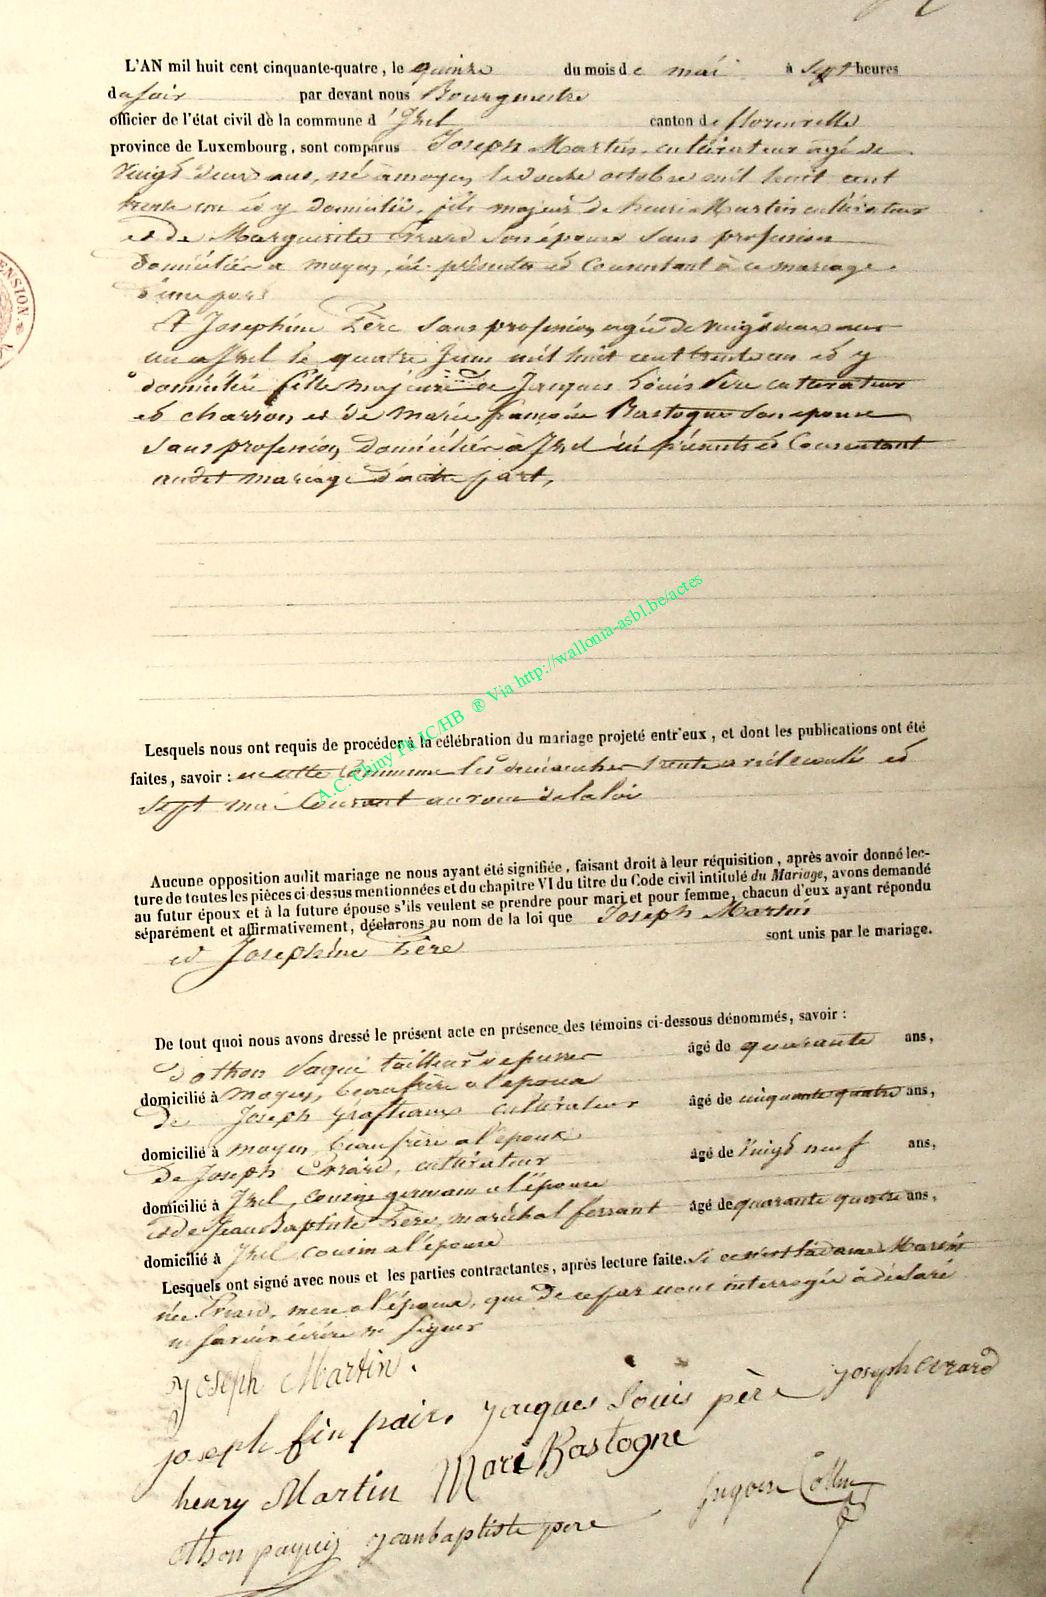 L'AN mil huit cent cinquante-quatre, le quinze du mois de mai à sept heures
du soir par devant nous Bourgmestre
officier de l'état civil de la commune d'Izel canton de florenville
province de Luxembourg, sont comparus Joseph Martin, cultivateur agé de
vingt deux ans, né à moyen le douze octobre mil huit cent
trente un et y domicilié, fils majeur de henri Martin cultivateur
et de Marguerite Evrard son épouse sans profession
domiciliés a moyen, ici présents et consentant à ce mariage
d'une part
Et Josephine Père sans profession, agée de vingt deux ans
née a Izel le quatre Juin mil huit cent trente un et y
domiciliée fille majeure de Jacques Louis Père cultivateur
et charron, et de marie françoise Bastogne son epouse
sans profession, domiciliés à Izel ici présents et consentant
audit mariage d'autre part,
A.C. Chiny Ph JC/HB ® Via http://wallonia-asbl.be/actes
Lesquels nous ont requis de procéder à la célébration du mariage projeté entr'eux, et dont les publications ont été
faites, savoir : en cette commune les dimanches trente avril écoulé et
sept mai courant au vœu de la loi
Aucune opposition audit mariage ne nous ayant été signifiée, faisant droit à leur réquisition, après avoir donné lec-
ture de toutes les pièces ci-dessus mentionnées et du chapitre VI du titre du Code civil intitulé du Mariage, avons demandé
au futur époux et à la future épouse s'ils veulent se prendre pour mari et pour femme, chacun d'eux ayant répondu
séparément et affirmativement, déclarons au nom de la loi que Joseph Martin
et Josephine Père sont unis par le mariage.
De tout quoi nous avons dressé le présent acte en présence des témoins ci-dessous dénommés, savoir :
d'othon tailleur de pierres âgé de quarante ans,
domicilié à moyen, beau frère a l'époux
de Joseph cultivateur âgé de cinquante quatre ans,
domicilié à moyen, beau frère a l'époux
de Joseph Evrard, cultivateur âgé de vingt neuf ans,
domicilié à Izel, cousin germain a l'épouse
et de Jean Baptiste Père, maréchal ferrant âgé de quarante quatre ans,
domicilié à Izel cousin a l'épouse
Lesquels ont signé avec nous et les parties contractantes, après lecture faite. Si ce n'est la dame Martin
née Evrard, mère a l'époux, que de ce par nous interrogée à déclaré
ne savoir écrire ni signer
Joseph Martin.
joseph jacques Louis père joseph evrard
henry Martin Mari Bastogne
othon jean baptiste pere Collin